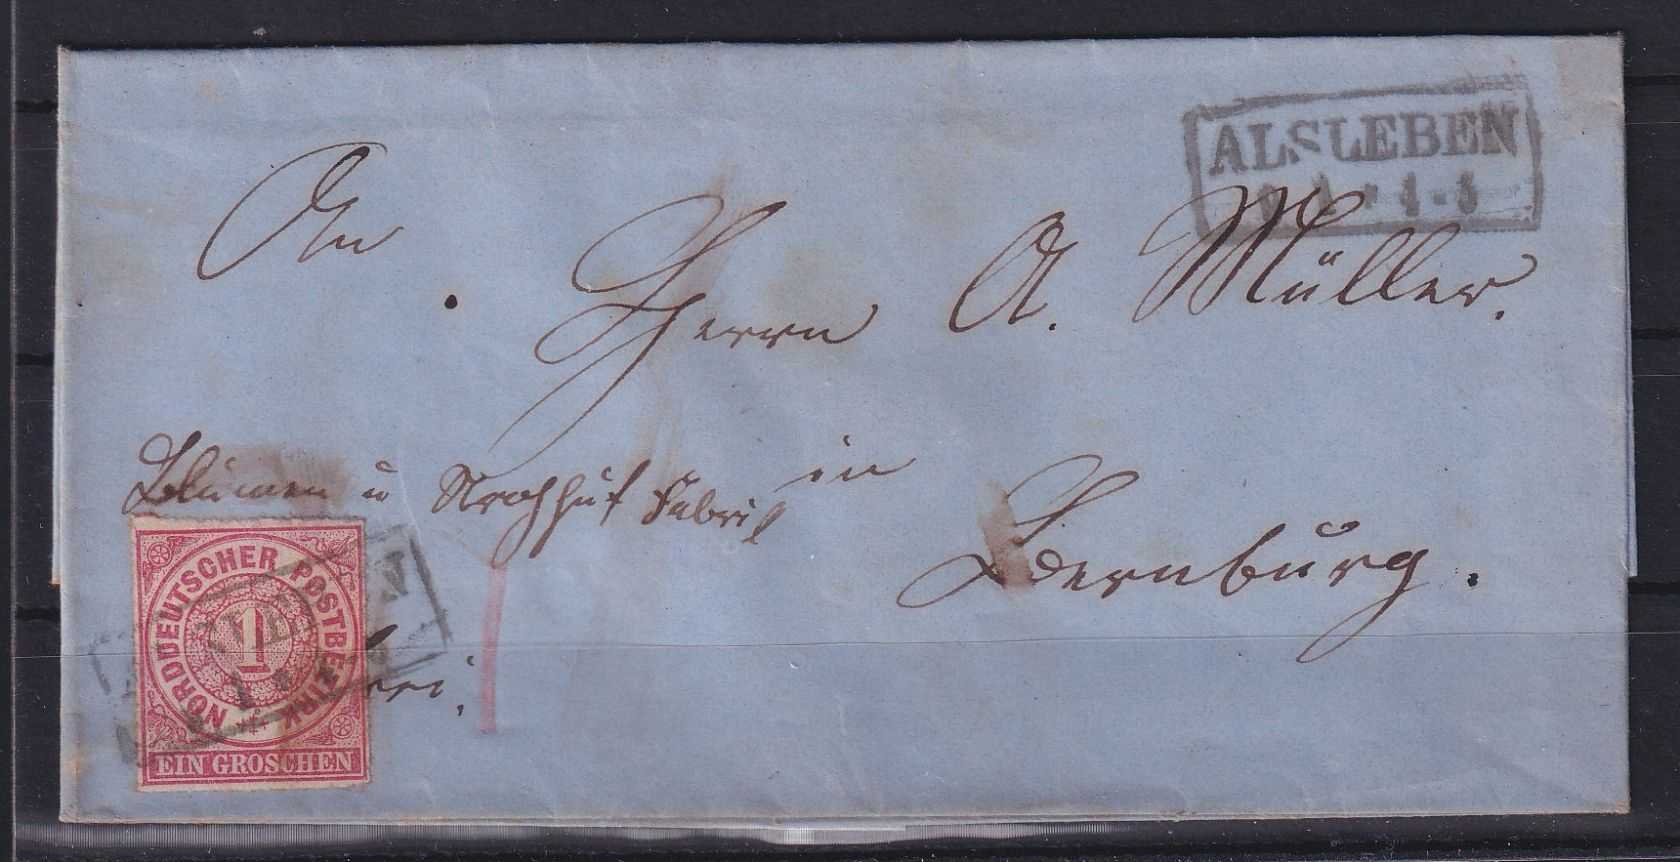 ALSLEBEN
An
Herrn A. Müller.
Blumen u Strohhut Fabrik in
Bernburg.
NORDDEUTSCHER POSTBEZIRK
1
EIN GROSCHEN